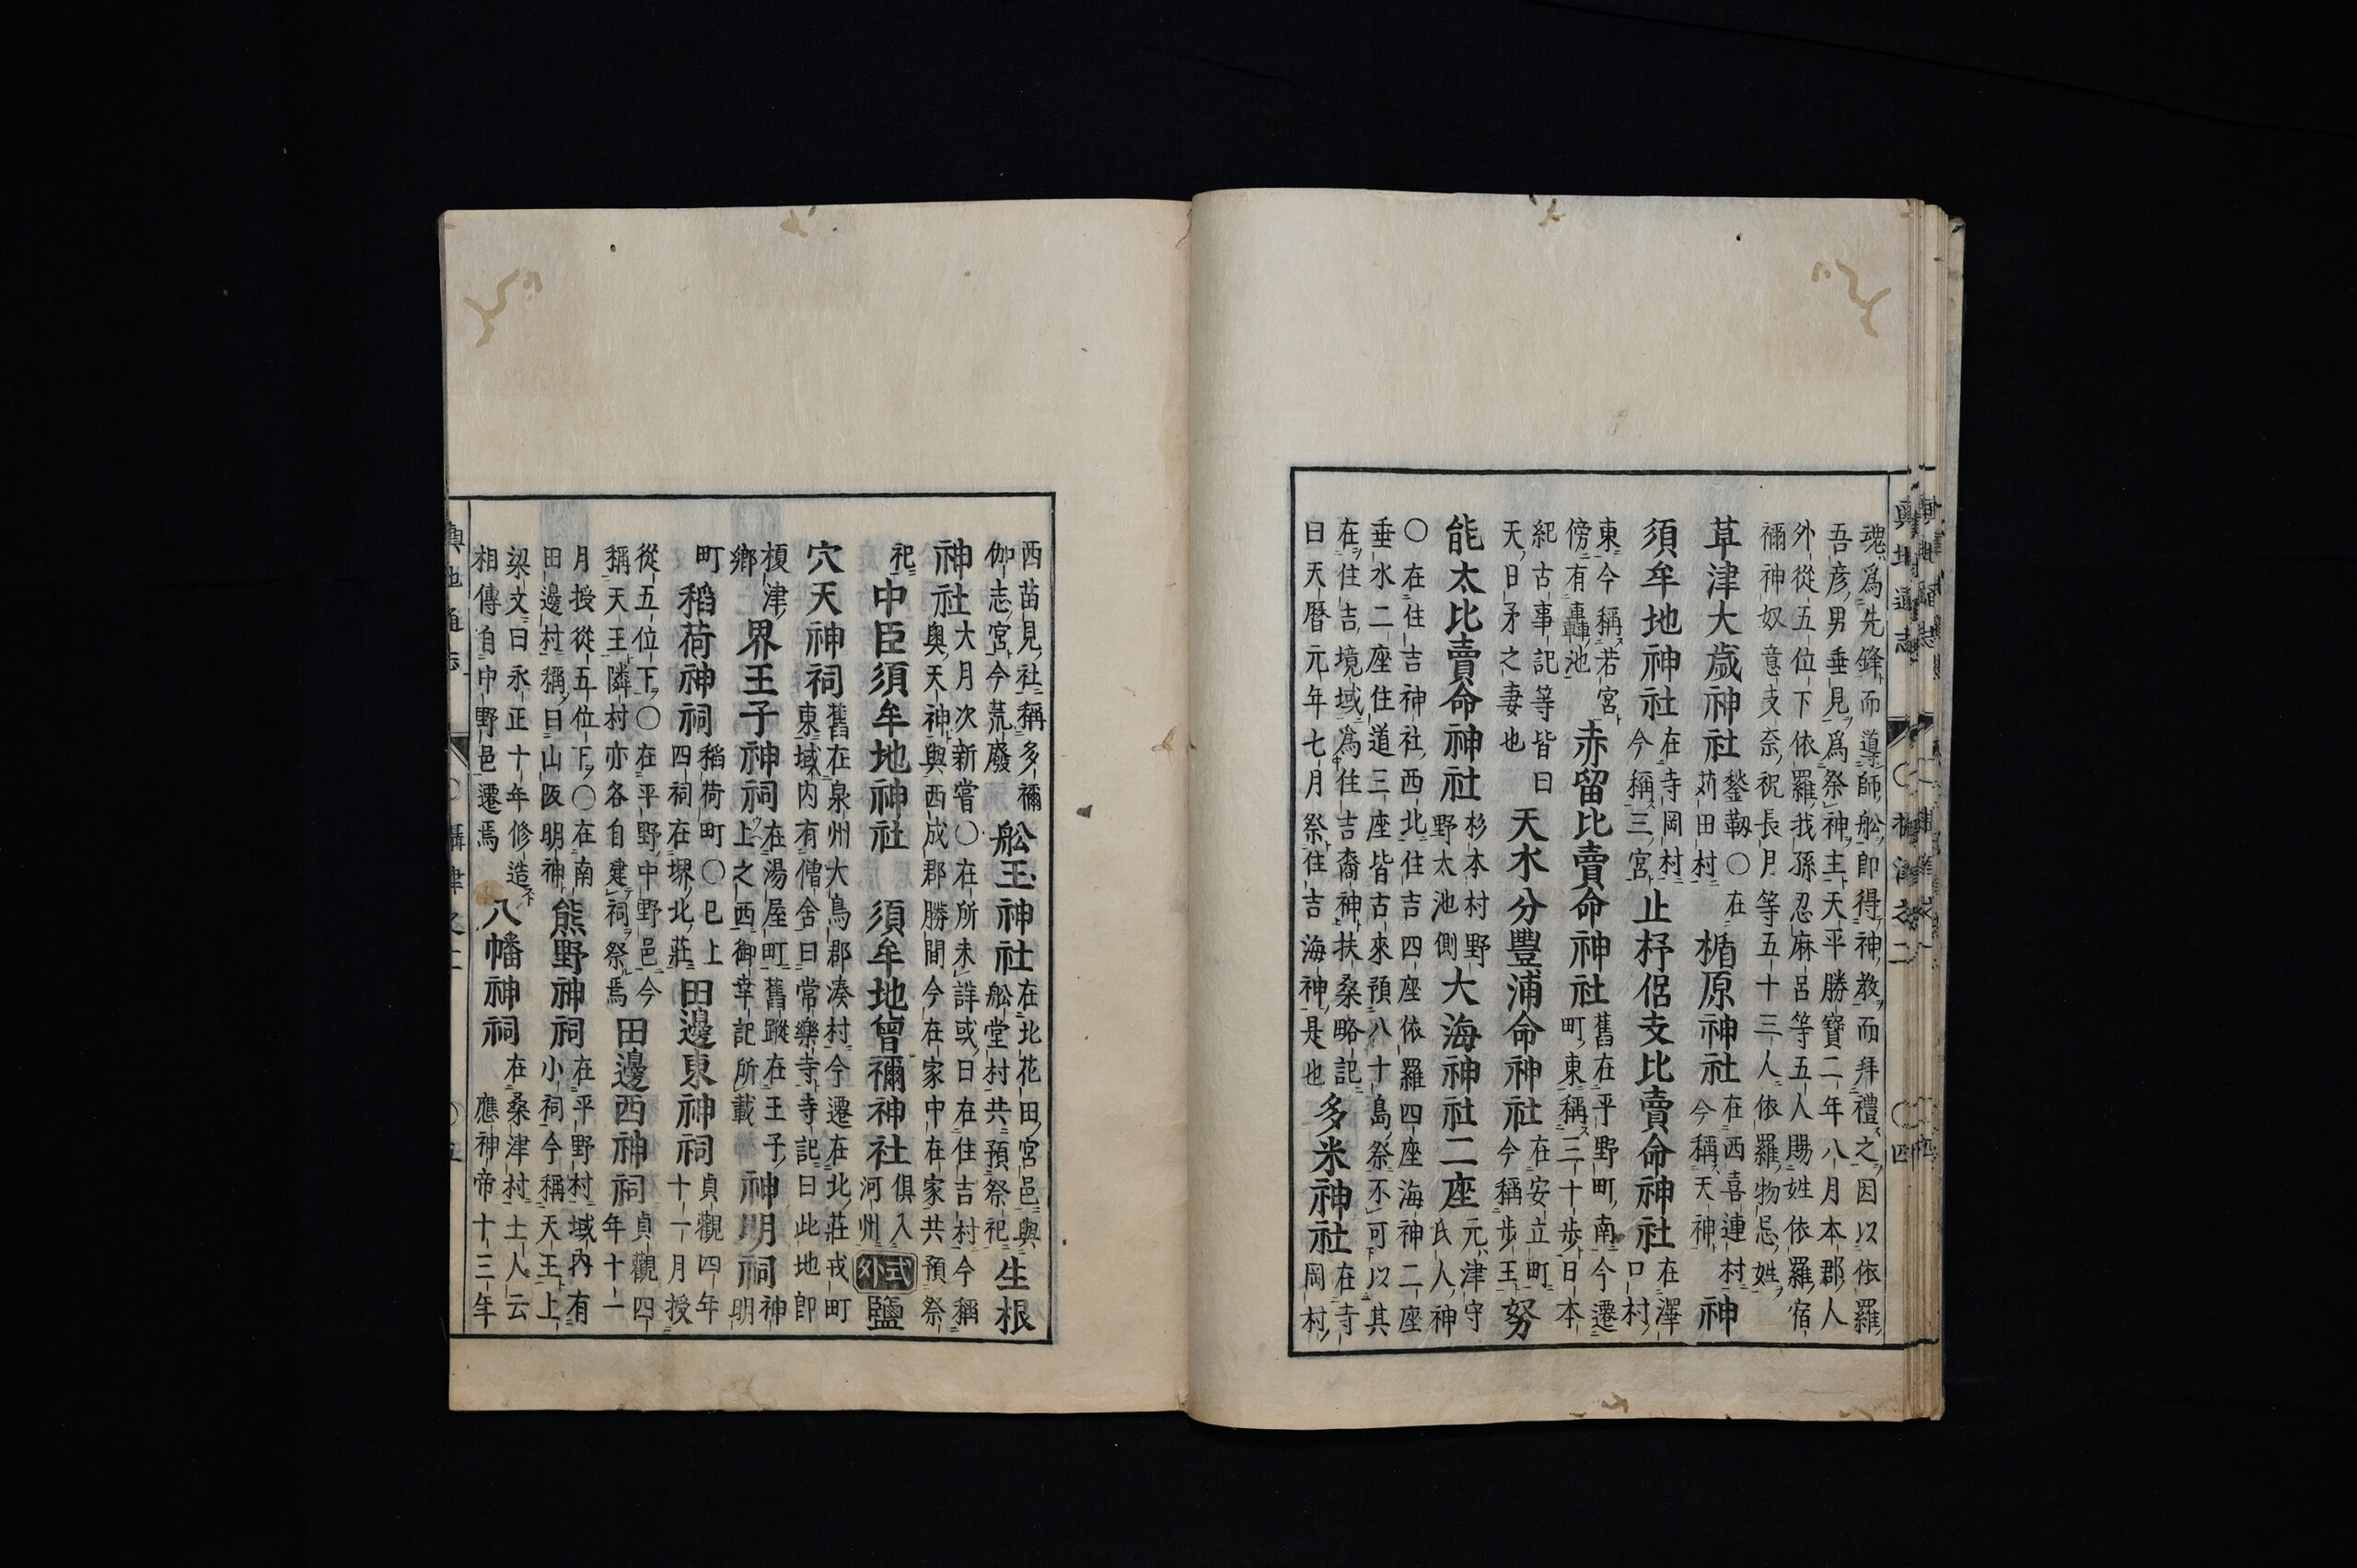 輿地通志 〇攝津之二 〇四
魂爲先鋒而導師船即得神教而拜禮之因以依羅
吾彦男垂見爲祭神主天平勝寶二年八月本郡人
外從五位下依羅我孫忍麻呂等五人賜姓依羅宿
禰神奴意支奈祝長月等五十三人依羅物忌姓
草津大歳神社 鍫靱〇在 苅田村 楯原神社 在西喜連村 今稱天神 神
須牟地神社 在寺岡村 今稱三宮 止杼侶支比賣命神社 在澤 口村
東今稱若宮 傍有轟池 赤留比賣命神社 舊在平野町南今遷 町東稱三十歩日本
紀古事記等皆曰 天日矛之妻也 天水分豐浦命神社 在安立町 今稱歩王 努
能太比賣命神社 杉本村野 野太池側 大海神社二座 元津守 氏人神
〇在住吉神社西北住吉四座依羅四座海神二座
垂水二座住道三座皆古來預八十島祭不可以其
在住吉境域爲住吉裔神扶桑略記 曰天暦元年七月祭住吉海神是也 多米神社 在寺 岡村
西苗見社稱多禰 伽志宮今荒廢 舩玉神社 在北花田宮邑與 舩堂村共預祭祀 生根
神社 大月次新嘗〇在所未詳或曰在住吉村今稱 奥天神與西成郡勝間今在家中在家共預祭
祀 中臣須牟地神社 須牟地曾禰神社 俱入 河州 式外 鹽
穴天神祠 舊在泉州大鳥郡湊村今遷在北莊戎町 東域内有僧舍曰常樂寺寺記曰此地即
榎津 郷 界王子神祠 在湯屋町舊蹤在王子 上之西御幸記所載 神明祠 神 明
町 稻荷神祠 稻荷町〇已上 四祠在堺北莊 田邊東神祠 貞觀四年 十一月授
從五位下〇在平野中野邑今 稱天王隣村亦各自建祠祭焉 田邊西神祠 貞觀四 年十一
月授從五位下〇在南 田邊村稱曰山阪明神 熊野神祠 在平野村域内有 小祠今稱天王上
梁文曰永正十年修造 相傳自中野邑遷焉 八幡神祠 在桑津村土人云 應神帝十三年
輿地通志 〇攝津之二 〇五